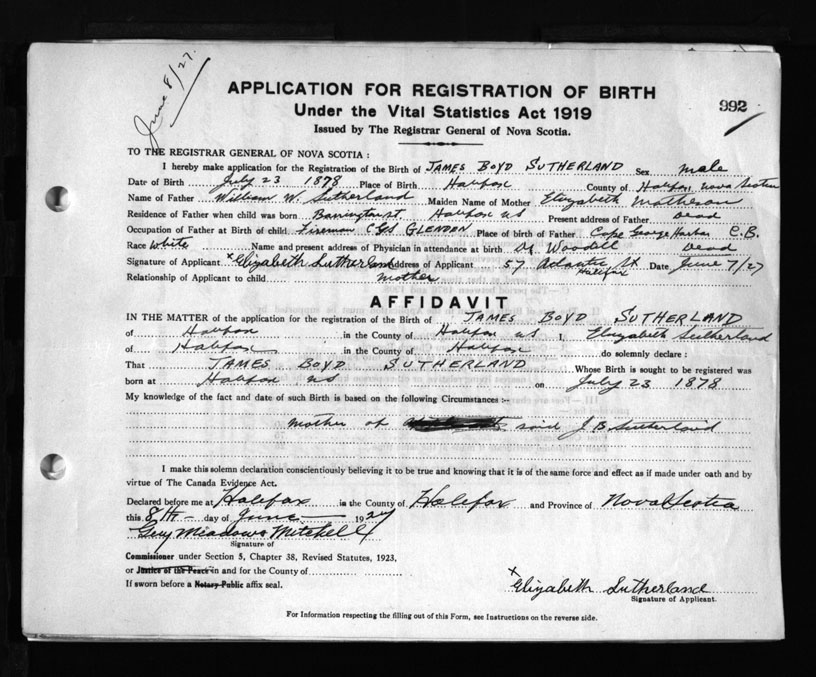 June 8/27.
APPLICATION FOR REGISTRATION OF BIRTH
992
Under the Vital Statistics Act 1919
Issued by The Registrar General of Nova Scotia.
TO THE REGISTRAR GENERAL OF NOVA SCOTIA :
I hereby make application for the Registration of the Birth of JAMES BOYD SUTHERLAND Sex male
Date of Birth July 23 1878 Place of Birth Halifax County of Halifax, Nova Scotia
Name of Father William W. Sutherland Maiden Name of Mother Elizabeth Matheson
Residence of Father when child was born Barrington St Halifax NS Present address of Father Dead
Occupation of Father at Birth of child Fireman CGS GLENDON Place of birth of Father Cape George Harbor C.B.
Race White Name and present address of Physician in attendance at birth Dr Woodill Dead
Signature of Applicant x Elizabeth Sutherland Address of Applicant 57 Atlantic St Halifax Date June 7/27
Relationship of Applicant to child mother
AFFIDAVIT
IN THE MATTER of the application for the registration of the Birth of JAMES BOYD SUTHERLAND
of Halifax in the County of Halifax NS I, Elizabeth Sutherland
of Halifax in the County of Halifax do solemnly declare :
That JAMES BOYD SUTHERLAND Whose Birth is sought to be registered was
born at Halifax NS on July 23 1878
My knowledge of the fact and date of such Birth is based on the following Circumstances :-
Mother of said J. B. Sutherland
I make this solemn declaration conscientiously believing it to be true and knowing that it is of the same force and effect as if made under oath and by
virtue of The Canada Evidence Act.
Declared before me at Halifax in the County of Halifax and Province of Nova Scotia
this 8th day of June 1927
Guy Meadows Mitchell
Signature of
Commissioner under Section 5, Chapter 38, Revised Statutes, 1923,
or Justice of the Peace in and for the County of
If sworn before a Notary Public affix seal.
x Elizabeth Sutherland
Signature of Applicant.
For Information respecting the filling out of this Form, see Instructions on the reverse side.